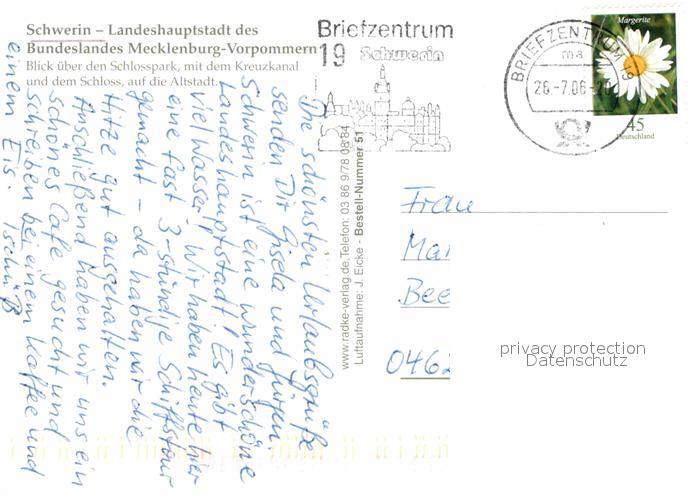 Schwerin – Landeshauptstadt des
Bundeslandes Mecklenburg-Vorpommern
Blick über den Schlosspark, mit dem Kreuzkanal
und dem Schloss, auf die Altstadt.
Die schönsten Urlaubsgrüße
senden Dir Gisela und Jürgen
Schwerin ist eine wunderschöne
Landeshauptstadt! Es gibt
viel Wasser. Wir haben heute hier
eine fast 3-stündige Schiffstour
gemacht – da haben wir die
Hitze gut ausgehalten.
Anschließend haben wir uns ein
schönes Cafe gesucht und
schreiben bei einem Kaffee und
einem Eis. Tschüß
www.radke-verlag.de, Telefon: 03 86 9/78 08 84
Luftaufnahme: J. Eicke - Bestell-Nummer 51
Briefzentrum
19 Schwerin
BRIEFZENTRUM 19
ma
26.-7.06-20
Margerite
45
Deutschland
Frau
Mai
Bee
0462
privacy protection
Datenschutz